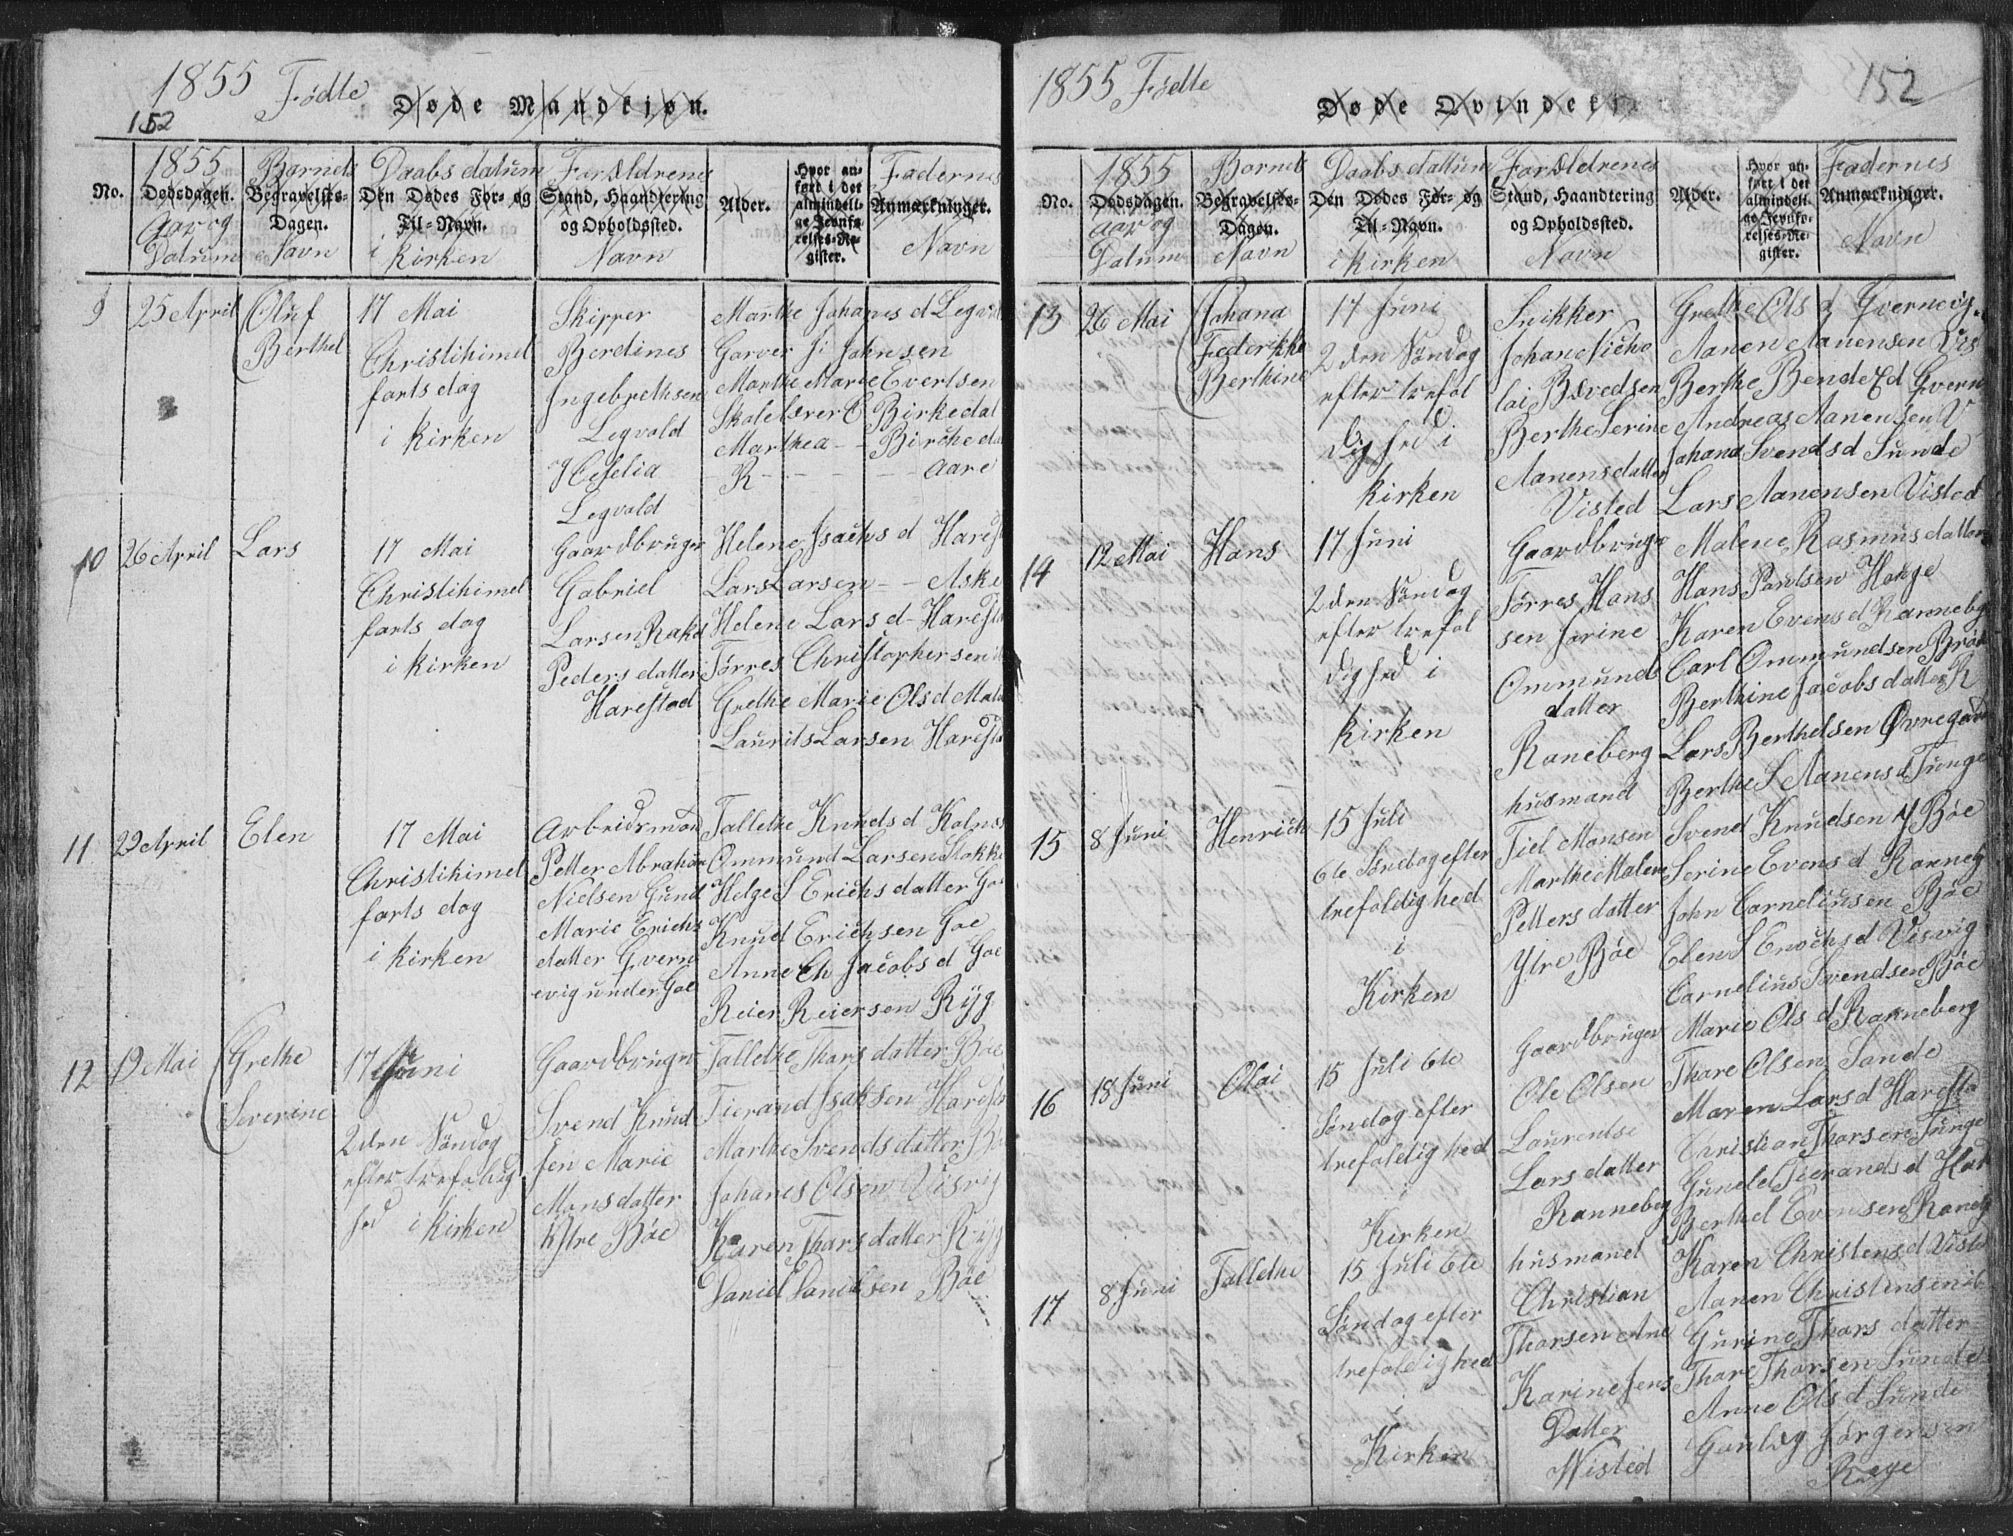 1855 Fødte
152
Døde Mandkiøn.
No.
1855
Dødsdagen.
Aar og
Datum
Barnets
Begravelses-
Dagen.
Navn
Daabs datum
Den Dødes For- og
Til-Navn.
i Kirken
Forældrenes
Stand, Haandtering
og Opholdssted.
Navn
Alder.
Hvor an-
ført i det
almindeli-
ge Jevnfø-
relses-Re-
gister.
Fadernes
Anmærkninger.
Navn
9
25 April
Oluf
Berthel
17 Mai
Christihimel
farts dag
i Kirken
Skipper
Berdines
Ingebrethsen
Legvold
Legvold
Marthe Johanes d
Garver
Johnsen
Marthe Marie Evertsen
Skolelærer C Birkedal
Marthea - - Birchedal
R - - - - - Aare
10
26 April
Lars
17 Mai
Christihimel
farts dag
i Kirken
Gaardbruger
Gabriel
Larsen
Peders datter
Harestad
Helene Isachs d
Lars Larsen - - Aske
Helene Lars d
Tørres Christophersen
Grethe Marie Ols d
Laurits Larsen
11
29 April
Elen
17 Mai
Christihimel
farts dag
i Kirken
Arbeidsman
Petter Abraham
Nielsen
Marie Erichs
datter
evig under Goe
Tallethe Knuds d
Ommund Larsen
Helge S Erichs datter
Knud Erichsen Goe
Anne Jacobs d Goe
Reier Reiersen Ryg
12
19 Mai
Grethe
Severine
17 Juni
2den Søndag
efter trefoldig
hed i Kirken
Gaardbruger
Svend Knud
sen Marie
Mons datter
Ytre Bøe
Tallethe Thors datter Bøe
Tierand Isaksen
Marthe Svends datter
Johanes Olsen
Karen Thors datter Ryg
Daniel Danielsen Bøe
1855 Fødte
152
Døde Qvindekiø
No.
1855
Dødsdagen.
Aar og
Datum
Barnets
Begravelses-
Dagen.
Navn
Daabs dattum
Den Dødes For- og
Til-Navn.
i Kirken
Forældrenes
Stand, Haandtering
og Opholdssted.
Navn
Alder.
Hvor an-
ført i det
almindeli-
ge Jevnfø-
relses-Re-
gister.
Fadernes
Anmærkninger.
Navn
13
26 Mai
Johana
Federikke
Berthine
17 Juni
2den Søndag
efter trefol
dighed i
Kirken
Snikker
Johan Nicho
lai
Berthe Serine
Aanens datter
Visted
Grethe Ols d
Aanen Aanensen
Berthe
Andreas Aanensen V
Johana Svends d Sunde
Lars Aanensen Visted
14
12 Mai
Hans
17 Juni
2den Søndag
efter trefol
dighed i
Kirken
Gaardbruger
Tørres Hans
sen
Ommunds
datter
Raneberg
Malene Rasmus datter
Hans Paulsen Hauge
Karen Evens d Ranneberg
Carl Ommundsen
Berthine Jacobs datter R
Lars Berthelsen
Berthe S Aanens d Tunge
15
8 Juni
Henrich
15 Juli
6te Søndag efter
trefoldighed
i
Kirken
husmand
Tiel Monsen
Marthe Malene
Petters datter
Ytre Bøe
Svend Knudsen Y Bøe
Serine Evens d Ranneberg
John Cornelinsen Bøe
Elen S Enochs d Visvig
Cornelius Svendsen Bøe
16
18 Juni
Olai
15 Juli 6te
Søndag efter
trefoldighed
i
Kirken
Gaardbruger
Ole Olsen
Laurentse
Lars datter
Ranneberg
Marie Ols d Ranneberg
Thore Olsen Sande
Maren Lars d
Christian Thorsen Tunge
Gunele Tierands d
Berthel Evensen
17
8 Juni
Tallethe
15 Juli 6te
Søndag efter
trefoldighed
i
Kirken
husmand
Christian
Thorsen Ane
Karine Jens
Datter
Wisted
Karen Christens d Visted
Aanen Christensen
Gurine Thors datter
Thore Thorsen Sunde
Anne Ols d Sunde
Gunleg Jørgensen
Røge